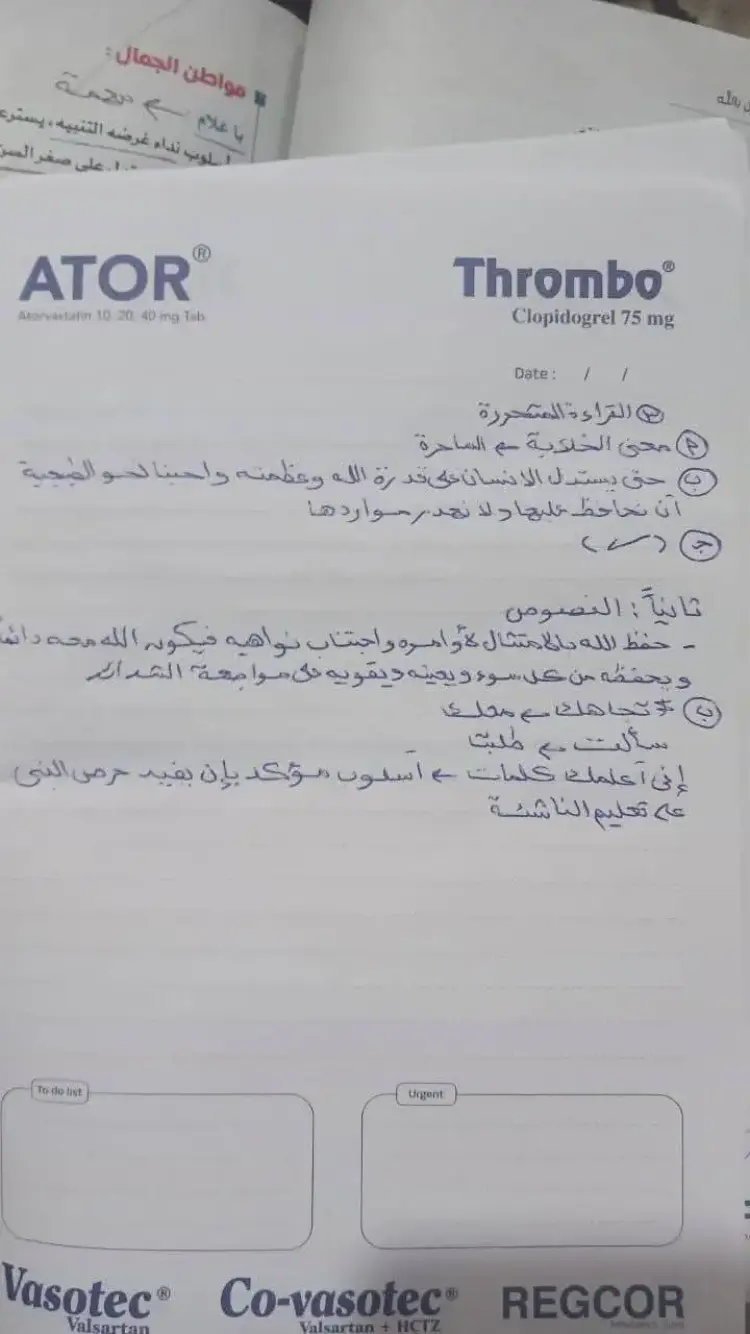 مواطن الجمال :
يا غلام
أسلوب نداء غرضه التنبيه، يسترعي
على صغر السن
ATOR®
Atorvastatin 10, 20, 40 mg Tab
Thrombo®
Clopidogrel 75 mg
Date : / /
القراءة المتحررة
معنى الخلابة ← الساحرة
ب حتى يستدل الانسان على قدرة الله وعظمته واجبنا نحو الطبيعة
أن نحافظ عليها ولا نهدر مواردها
ج (✓)
ثانياً : النصوص
- حفظ الله بالامتثال لأوامره واجتناب نواهيه فيكون الله معه دائماً
ويحفظه من كل سوء ويعينه ويقويه على مواجهة الشدائد
ب * تجاهك ← معك
سألت ← طلبت
إنى أعلمك كلمات ← أسلوب مؤكد بإن يفيد حرص النبى
على تعليم الناشئة
To do list
Urgent
Vasotec®
Valsartan
Co-vasotec®
Valsartan + HCTZ
REGCOR